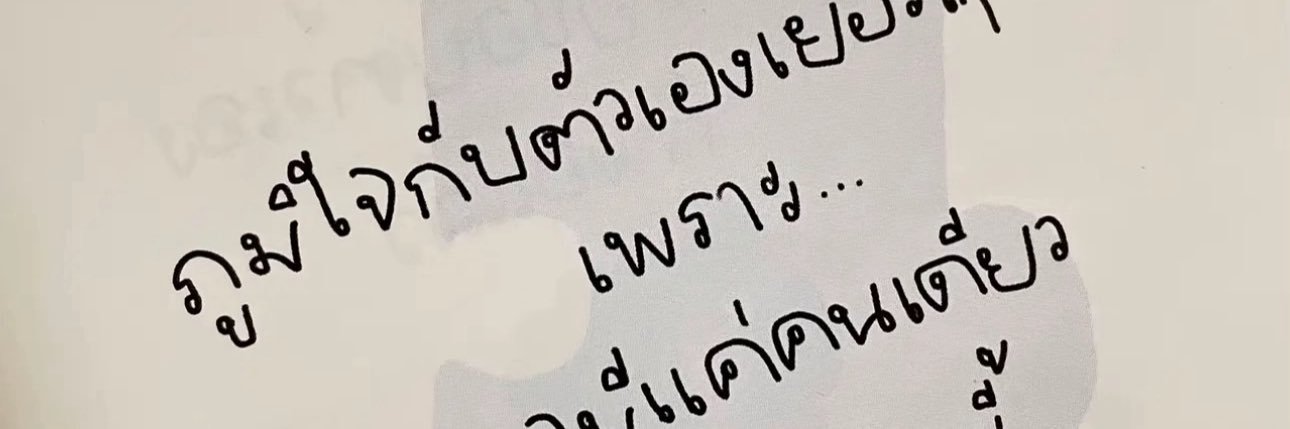 ภูมิใจกับตัวเองเยอะๆ
เพราะ...
มีแค่คนเดียว